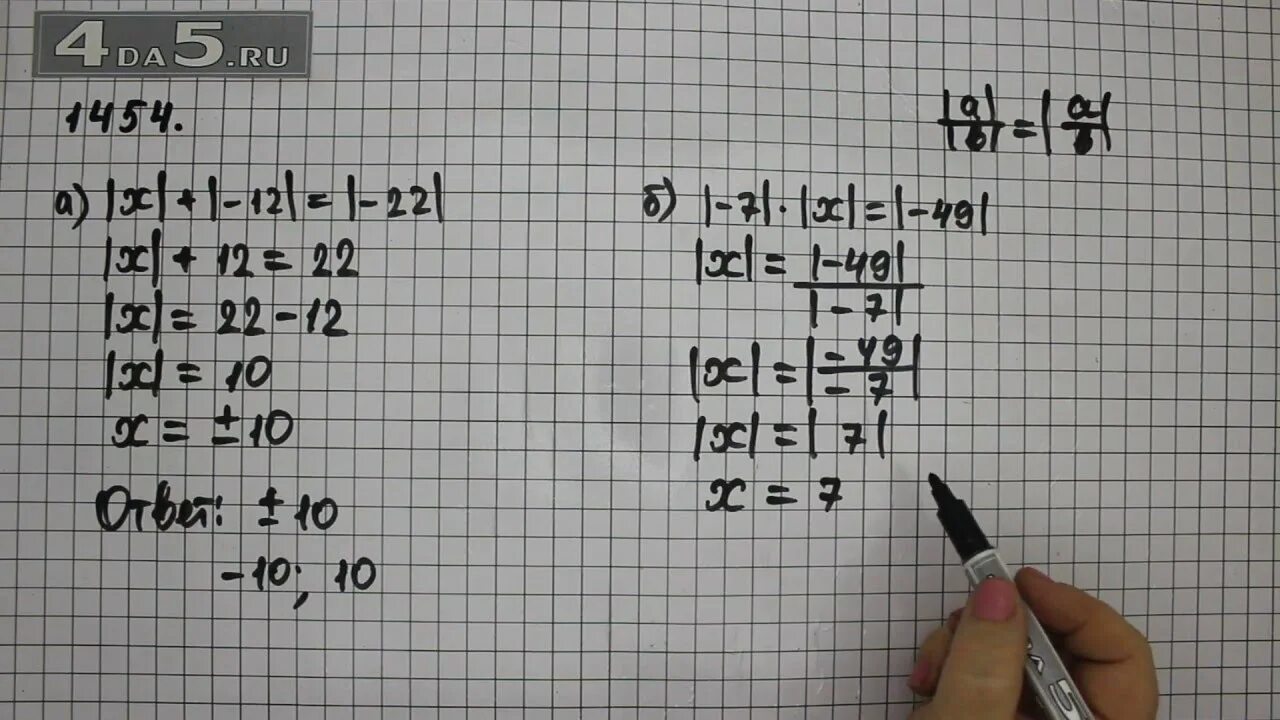 4DA5.RU
1454.
|a|/|b| = |a/b|
а) |x| + |-12| = |-22|
|x| + 12 = 22
|x| = 22 - 12
|x| = 10
x = ±10
Ответ: ±10
-10; 10
б) |-7| · |x| = |-49|
|x| = |-49|/|-7|
|x| = |-49/-7|
|x| = |7|
x = 7
ДА 5